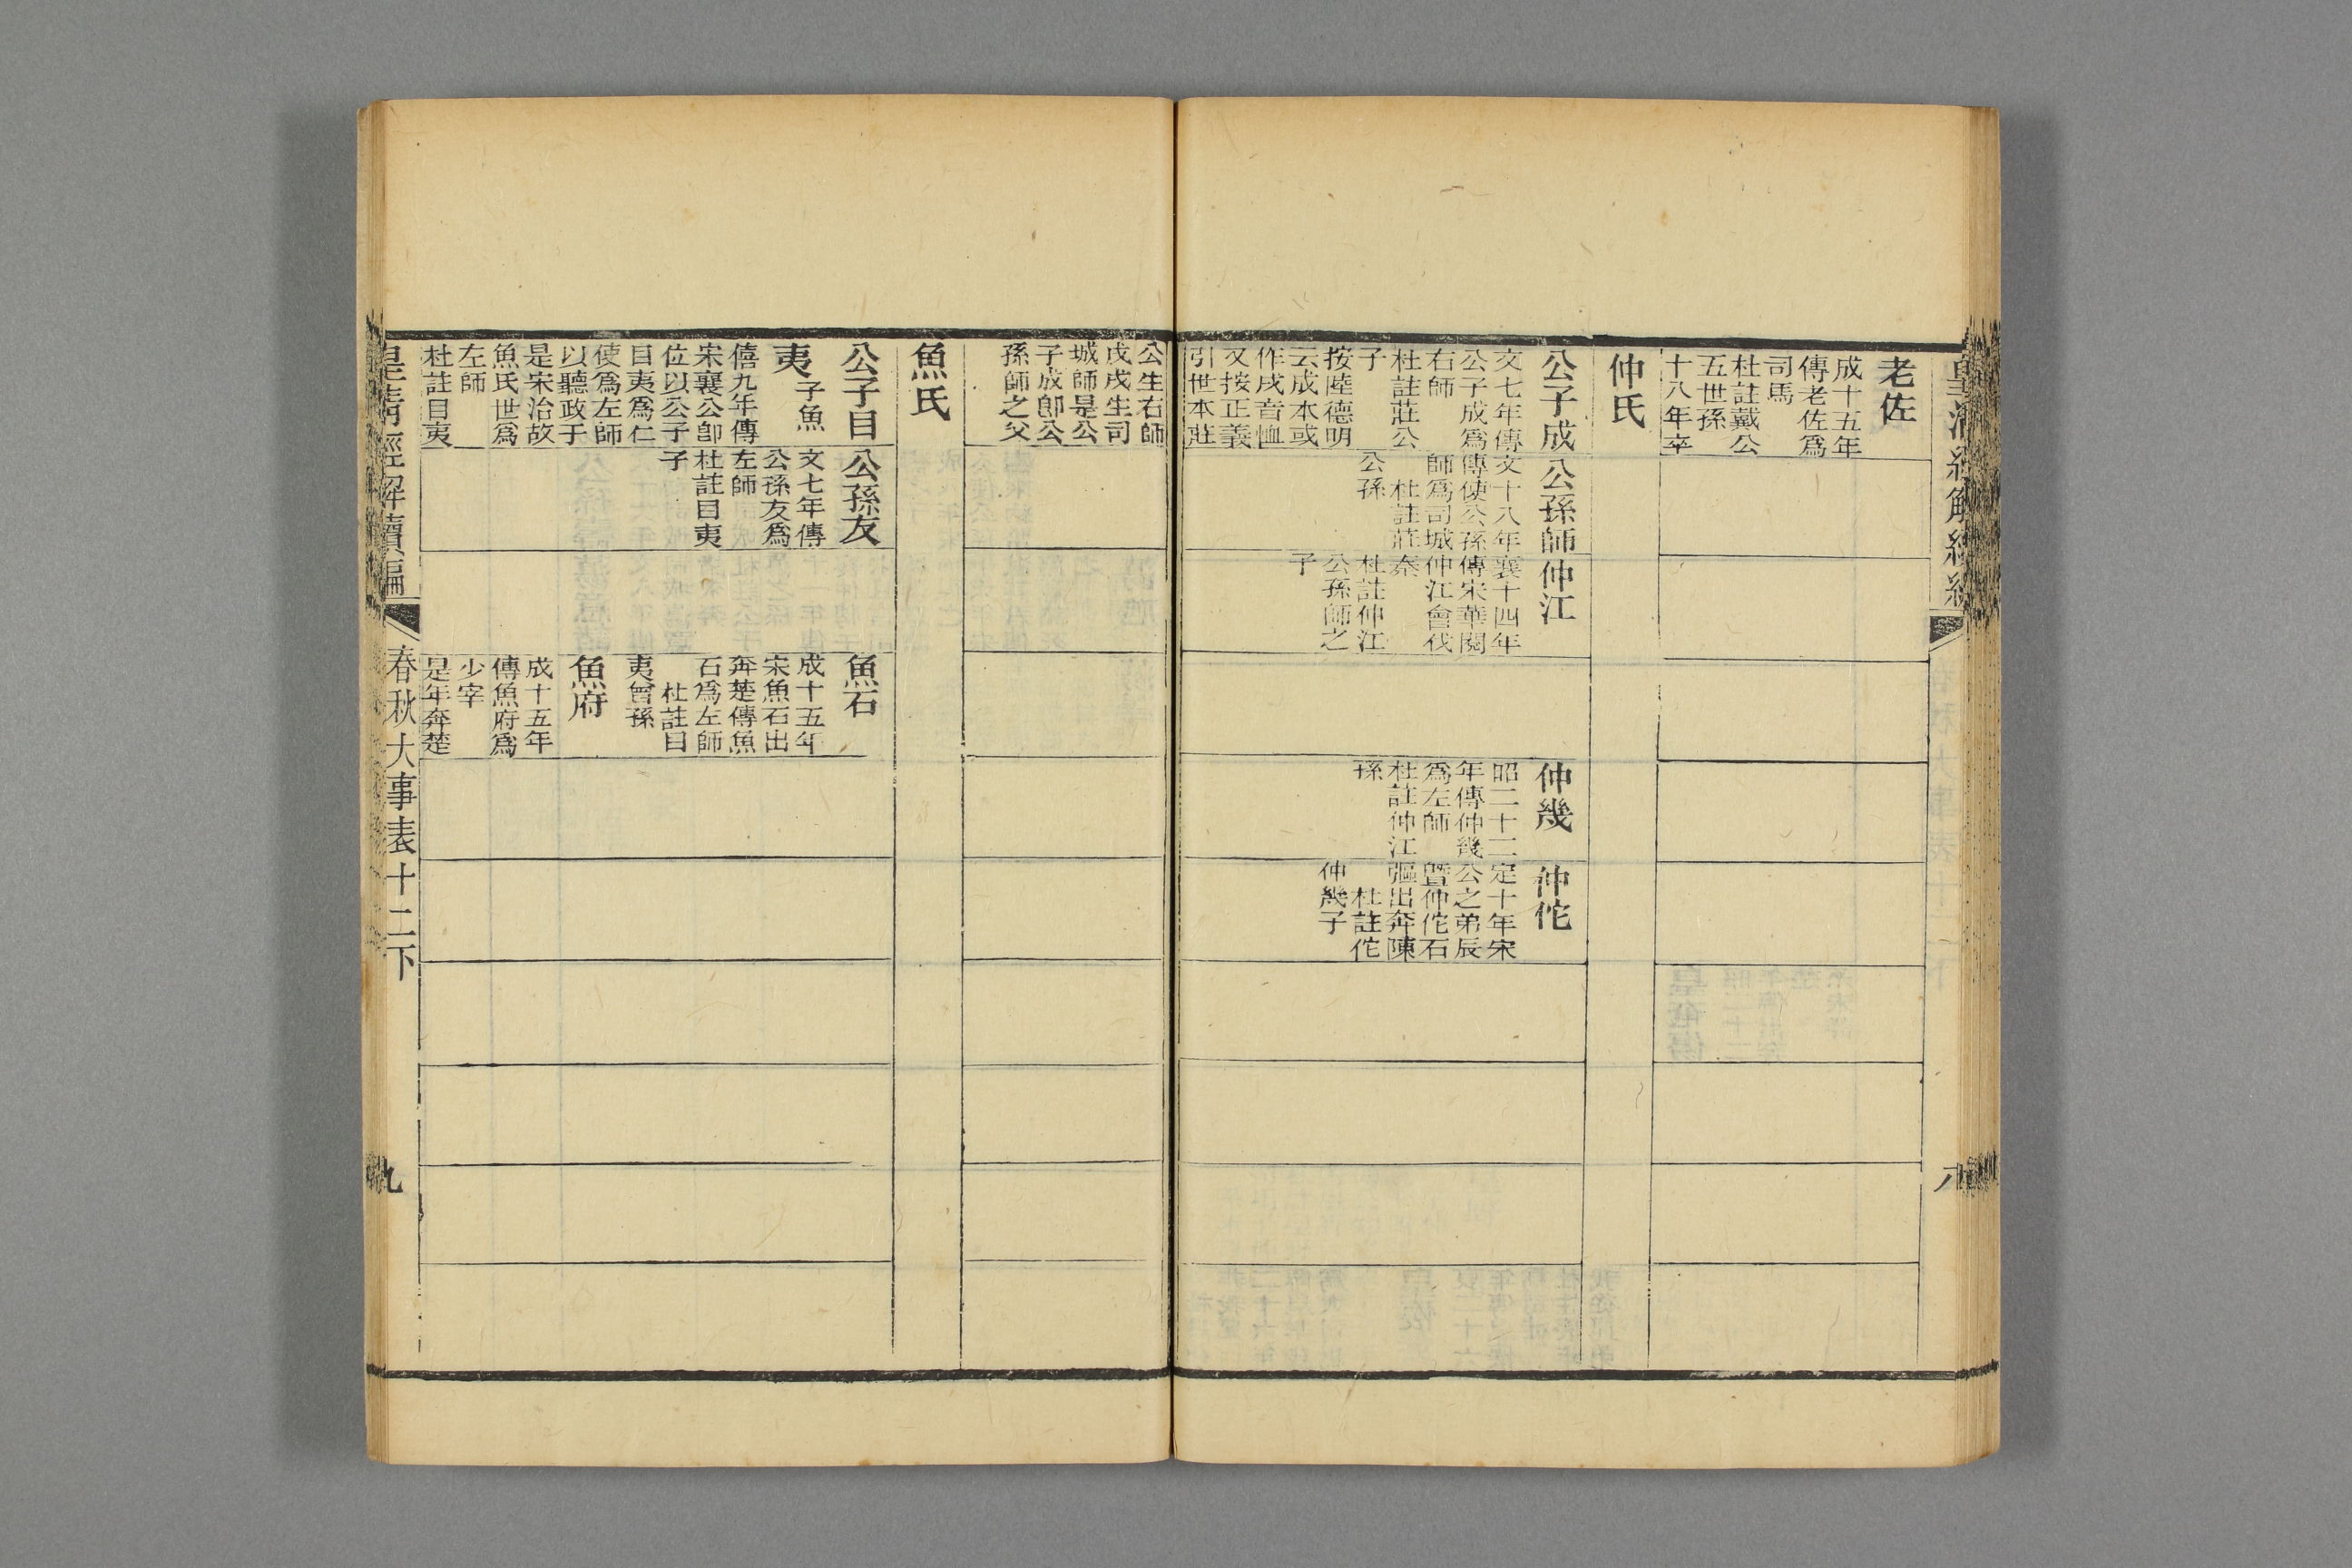 老佐
成十五年
傳老佐爲
司馬
杜註戴公
五世孫
十八年卒
仲氏
公子成
文七年傳
公子成爲
右師
杜註莊公
子
按陸德明
云成本或
作戌音恤
又按正義
引世本莊
公孫師
文十八年
傳使公孫
師爲司城
杜註莊
公孫
仲江
襄十四年
傳宋華閱
仲江會伐
秦
杜註仲江
公孫師之
子
仲幾
昭二十二
年傳仲幾
爲左師
杜註仲江
孫
仲佗
定十年宋
公之弟辰
暨仲佗石
彄出奔陳
杜註佗
仲幾子
八
公生右師
戌戌生司
城師是公
子成卽公
孫師之父
魚氏
公子目
夷子魚
僖九年傳
宋襄公卽
位以公子
目夷爲仁
使爲左師
以聽政于
是宋治故
魚氏世爲
左師
杜註目夷
公孫友
文七年傳
公孫友爲
左師
杜註目夷
子
魚石
成十五年
宋魚石出
奔楚傳魚
石爲左師
杜註目
夷曾孫
魚府
成十五年
傳魚府爲
少宰
是年奔楚
皇清經解續編
春秋大事表十二下
九